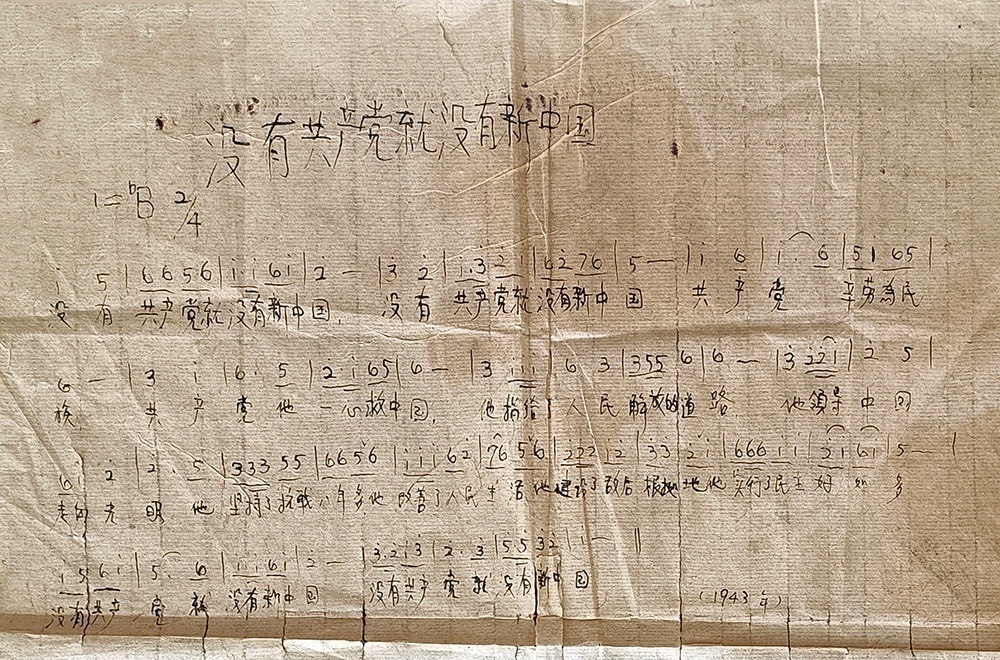 没有共产党就没有新中国
1=ᵇB 2/4
i 5 | 6 6 5 6 | i i 6 i | 2 — | 3 2 | i.3 2 i | 6 2 7 6 | 5 — | i 6 | i. 6 | 5 1 6 5 |
没有共产党就没有新中国. 没有共产党就没有新中国 共产党 辛劳為民
6 — | 3 i | 6. 5 | 2 i 6 5 | 6 — | 3 i i 6 3 | 3 5 5 6 | 6 — | 3 2 2 i | 2 5 |
族. 共产党他一心救中国. 他指给了人民解放的道路 他領导中国
6 i 2 | 2. 5 | 3 3 3 5 5 | 6 6 5 6 | i i i 6 2 | 7 6 5 6 | 2 2 2 i 2 | 3 3 2 i | 6 6 6 i i | 2 i 6 i | 5 — |
走向光明 他坚持了抗战八年多他改善了人民生活他建設了敌后根据地他实行了民主好如多
i 5 6 i | 5. 6 | i i 6 i | 2 — | 3.2 i 3 | 2. 3 | 5 5 3 2 | i — ‖
没有共产党就没有新中国 没有共产党就没有新中国
(1943年)